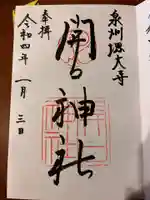 泉州堺大寺
開口神社
奉拝
令和四年一月三日